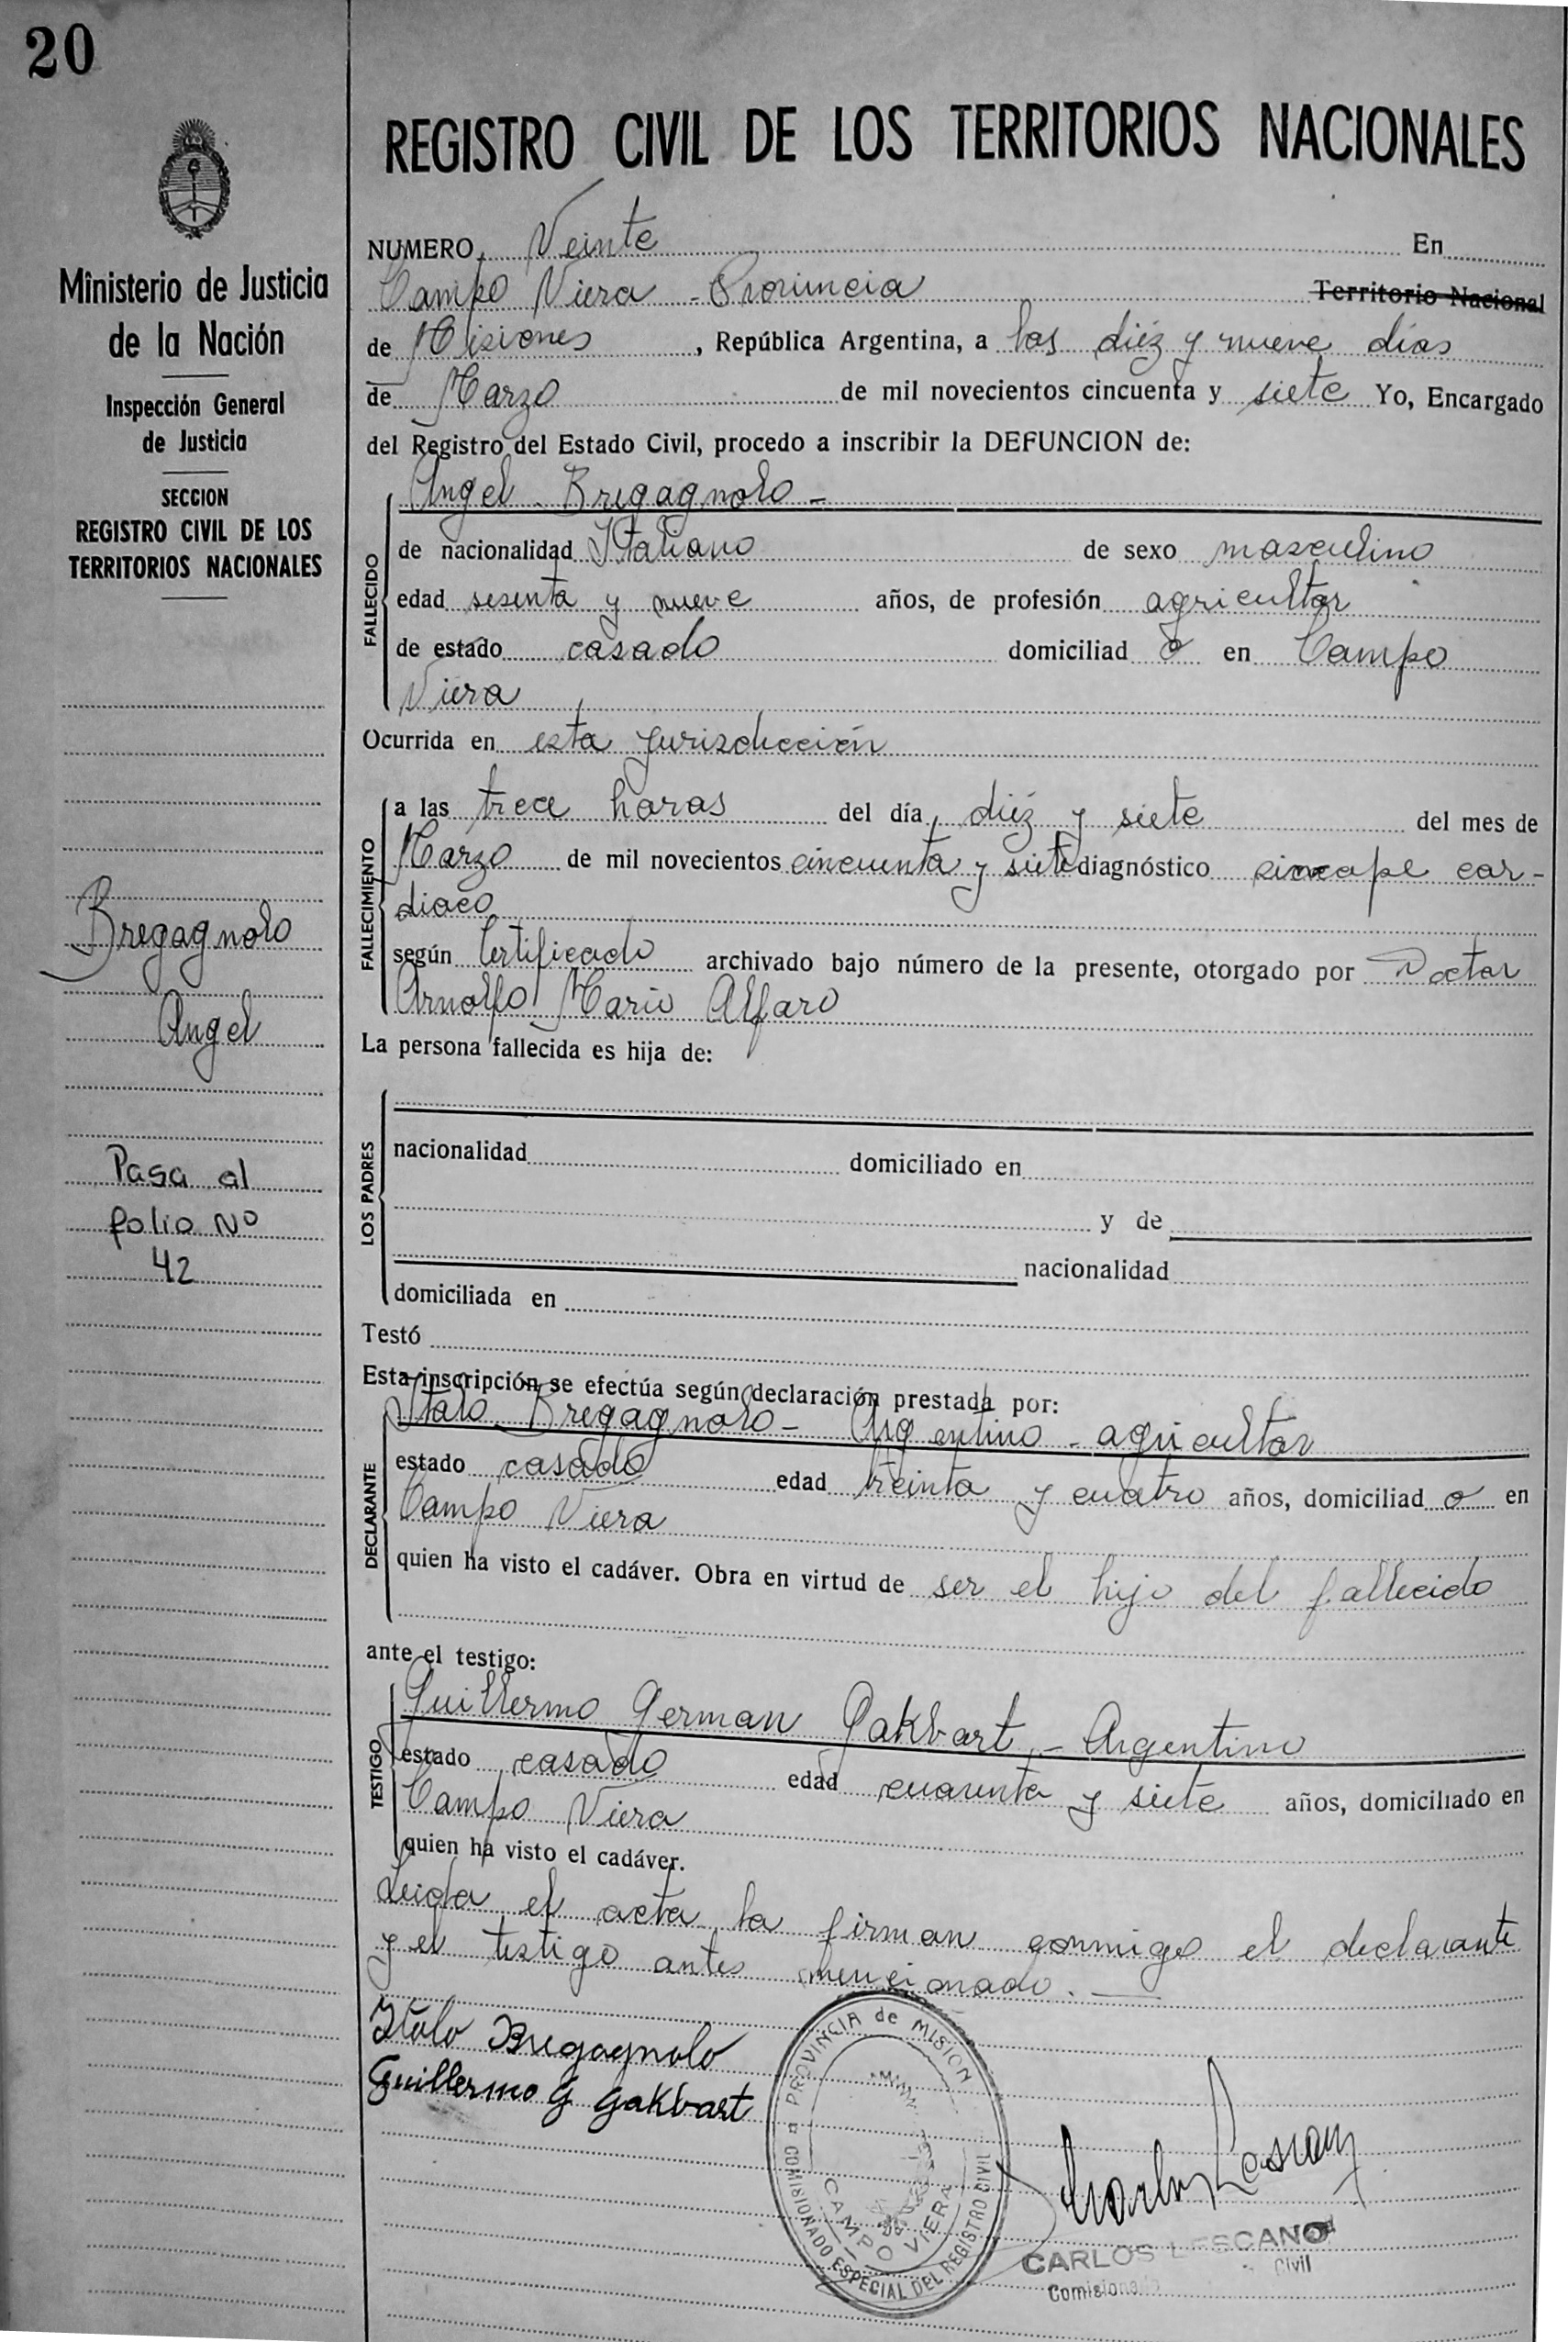 20
Ministerio de Justicia
de la Nación
Inspección General
de Justicia
SECCION
REGISTRO CIVIL DE LOS
TERRITORIOS NACIONALES
Bregagnolo
Angel
Pasa al
folio Nº
42
REGISTRO CIVIL DE LOS TERRITORIOS NACIONALES
NUMERO Veinte En
Campo Viera - Provincia Territorio Nacional
de Misiones, República Argentina, a los diéz y nueve días
de Marzo de mil novecientos cincuenta y siete Yo, Encargado
del Registro del Estado Civil, procedo a inscribir la DEFUNCION de:
Angel Bregagnolo -
FALLECIDO
de nacionalidad Italiano de sexo masculino
edad sesenta y nueve años, de profesión agricultor
de estado casado domiciliad o en Campo
Viera
Ocurrida en esta jurisdicción
FALLECIMIENTO
a las trece horas del día diéz y siete del mes de
Marzo de mil novecientos cincuenta y siete diagnóstico sincope car-
diaco
según Certificado archivado bajo número de la presente, otorgado por Doctor
Arnolfo Mario Alfaro
La persona fallecida es hija de:
LOS PADRES
nacionalidad domiciliado en
y de
nacionalidad
domiciliada en
Testó
Esta inscripción se efectúa según declaración prestada por:
Italo Bregagnolo - Argentino - agricultor
DECLARANTE
estado casado edad treinta y cuatro años, domiciliad o en
Campo Viera
quien ha visto el cadáver. Obra en virtud de ser el hijo del fallecido
ante el testigo:
Guillermo German Gakbart - Argentino
TESTIGO
estado casado edad cuarenta y siete años, domiciliado en
Campo Viera
quien ha visto el cadáver.
Leida el acta la firman conmigo el declarante
y el testigo antes mencionado.
Italo Bregagnolo
Guillermo G Gakbart
PROVINCIA de MISION
COMISIONADO ESPECIAL DEL REGISTRO CIVIL
CAMPO VIERA
Carlos Lescano
CARLOS LESCANO
Civil